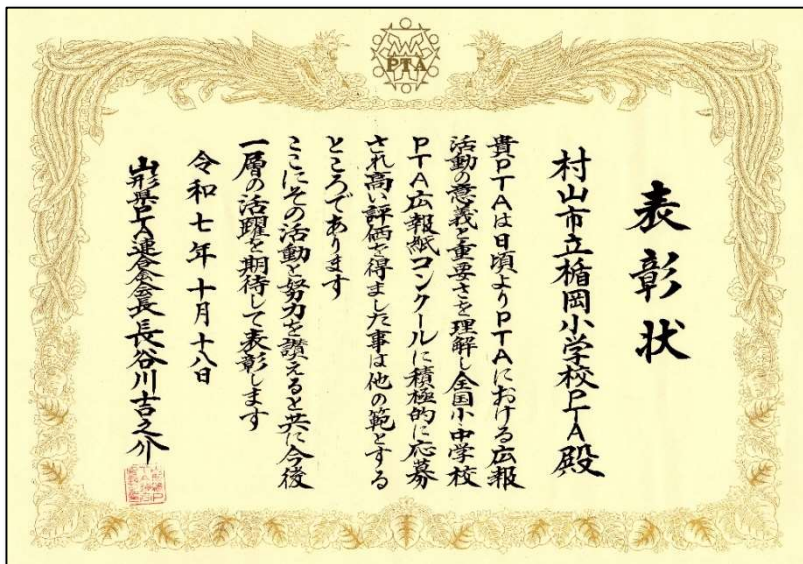 PTA
表彰状
村山市立楯岡小学校PTA殿
貴PTAは日頃よりPTAにおける広報
活動の意義と重要さを理解し全国小・中学校
PTA広報紙コンクールに積極的に応募
され高い評価を得ました事は他の範とする
ところであります
ここにその活動と努力を讃えると共に今後
一層の活躍を期待して表彰します
令和七年十月十八日
山形県PTA連合会会長 長谷川吉之介